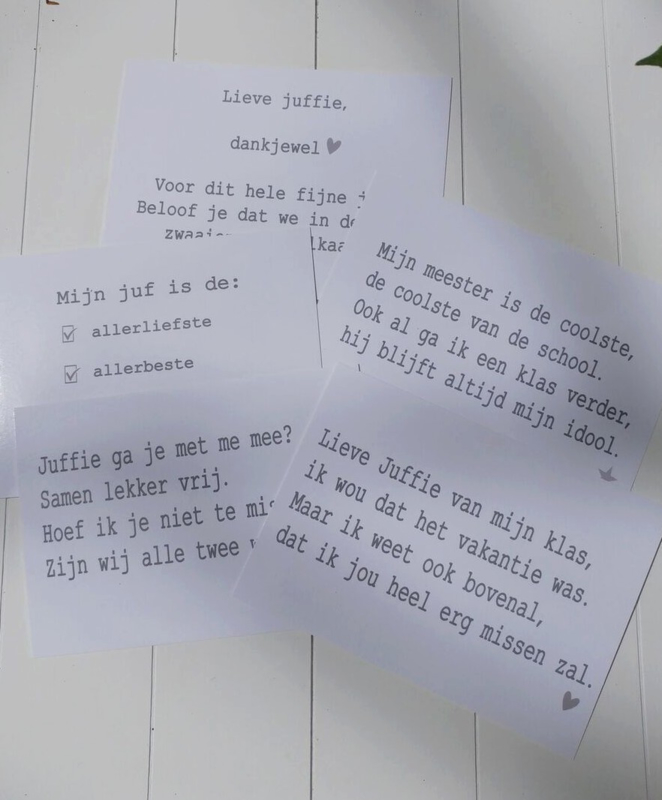 Lieve juffie,
dankjewel
Voor dit hele fijne
Beloof je dat we in
Mijn meester is de coolste,
de coolste van de school.
Ook al ga ik een klas verder,
hij blijft altijd mijn idool.
Mijn juf is de:
allerliefste
allerbeste
Juffie ga je met me mee?
Samen lekker vrij.
Hoef ik je niet te
Zijn wij alle twee
Lieve Juffie van mijn klas,
ik wou dat het vakantie was.
Maar ik weet ook bovenal,
dat ik jou heel erg missen zal.